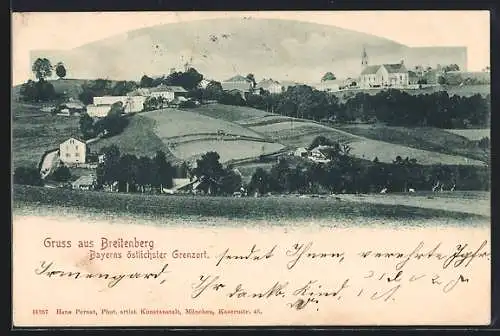 Gruss aus Breitenberg
Bayerns östlichster Grenzort. sendet Ihnen, verehrte
Irmengard, Ihr dankb. Kind,
11267 Hans Pernat, Phot. artist. Kunstanstalt, München, Kaserustr. 45.